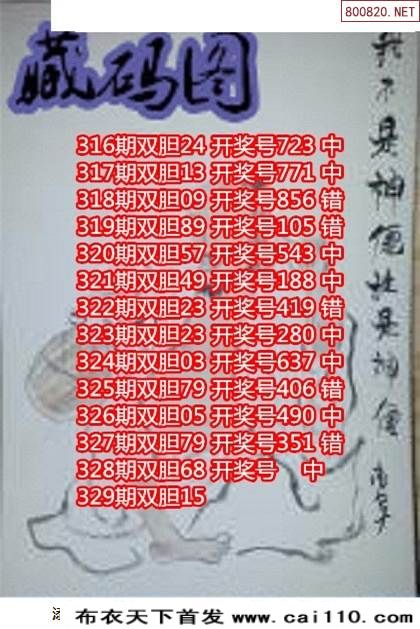 800820.NET
藏码图
我不是神仙
316期双胆24 开奖号723 中
317期双胆13 开奖号771 中
318期双胆09 开奖号856 错
319期双胆89 开奖号105 错
320期双胆57 开奖号543 中
321期双胆49 开奖号188 中
322期双胆23 开奖号419 错
323期双胆23 开奖号280 中
324期双胆03 开奖号637 中
325期双胆79 开奖号406 错
326期双胆05 开奖号490 中
327期双胆79 开奖号351 错
328期双胆68 开奖号 中
329期双胆15
布衣天下首发 www.cai110.com